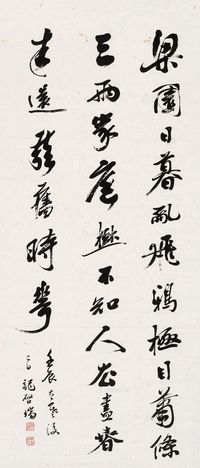 梁園日暮亂飛鴉極目蕭條
三兩家庭樹不知人去盡春
来還發舊時花
壬辰